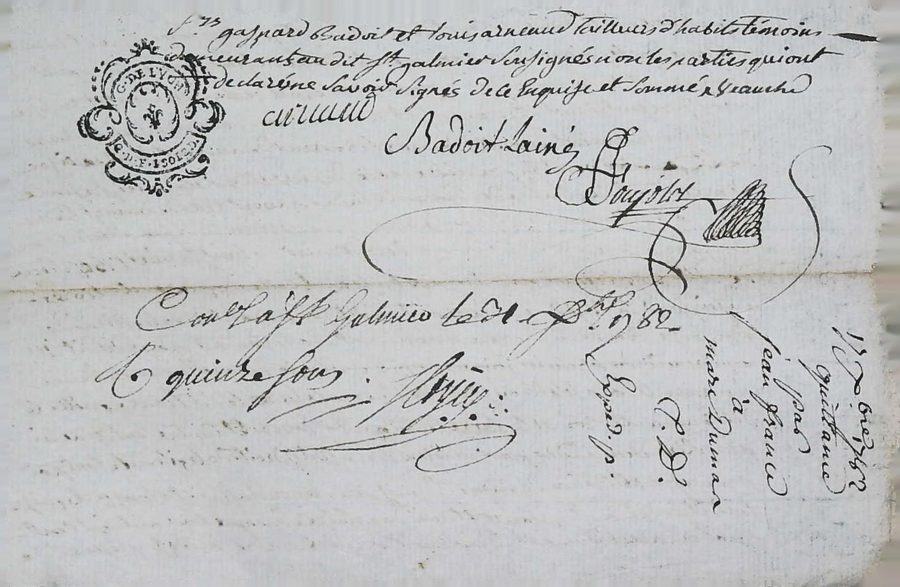 gaspard Badoit et Louis arneaud tailleurs d'habits témoins
demeurants audit St galmier Soussignés non les parties qui ont
declaré ne Savoir Signés de ce Enquise et Sommé
G. DE LYON
arnaud
Badoit Lainé
Coullé à St Galmier le 21
quinze Sous
17 Xbre 1782
quittance
par
jean france
à
marc Dumas
Exped. p.